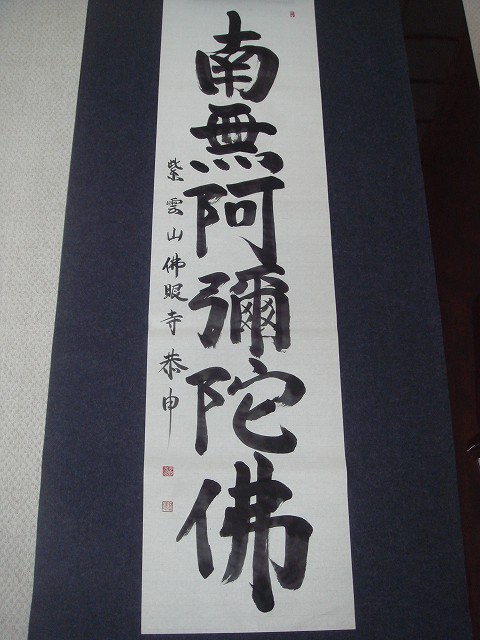 南無阿彌陀佛
紫雲山佛眼寺 恭申